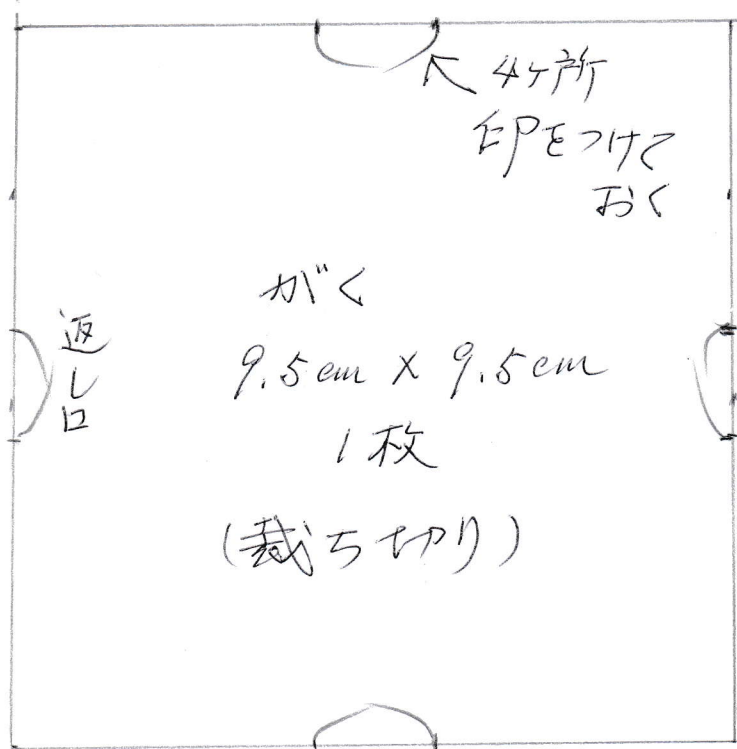 4ヶ所
印をつけて
おく
がく
返し口
9.5cm × 9.5cm
1枚
(裁ち切り)